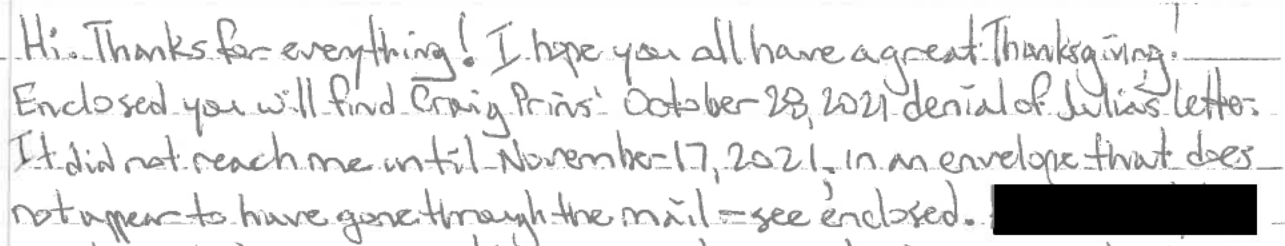 Hi. Thanks for everything! I hope you all have a great Thanksgiving!
Enclosed you will find Craig Prins' October 28, 2021 denial of Julia's letter.
It did not reach me until November 17, 2021, in an envelope that does
not appear to have gone through the mail – see enclosed.